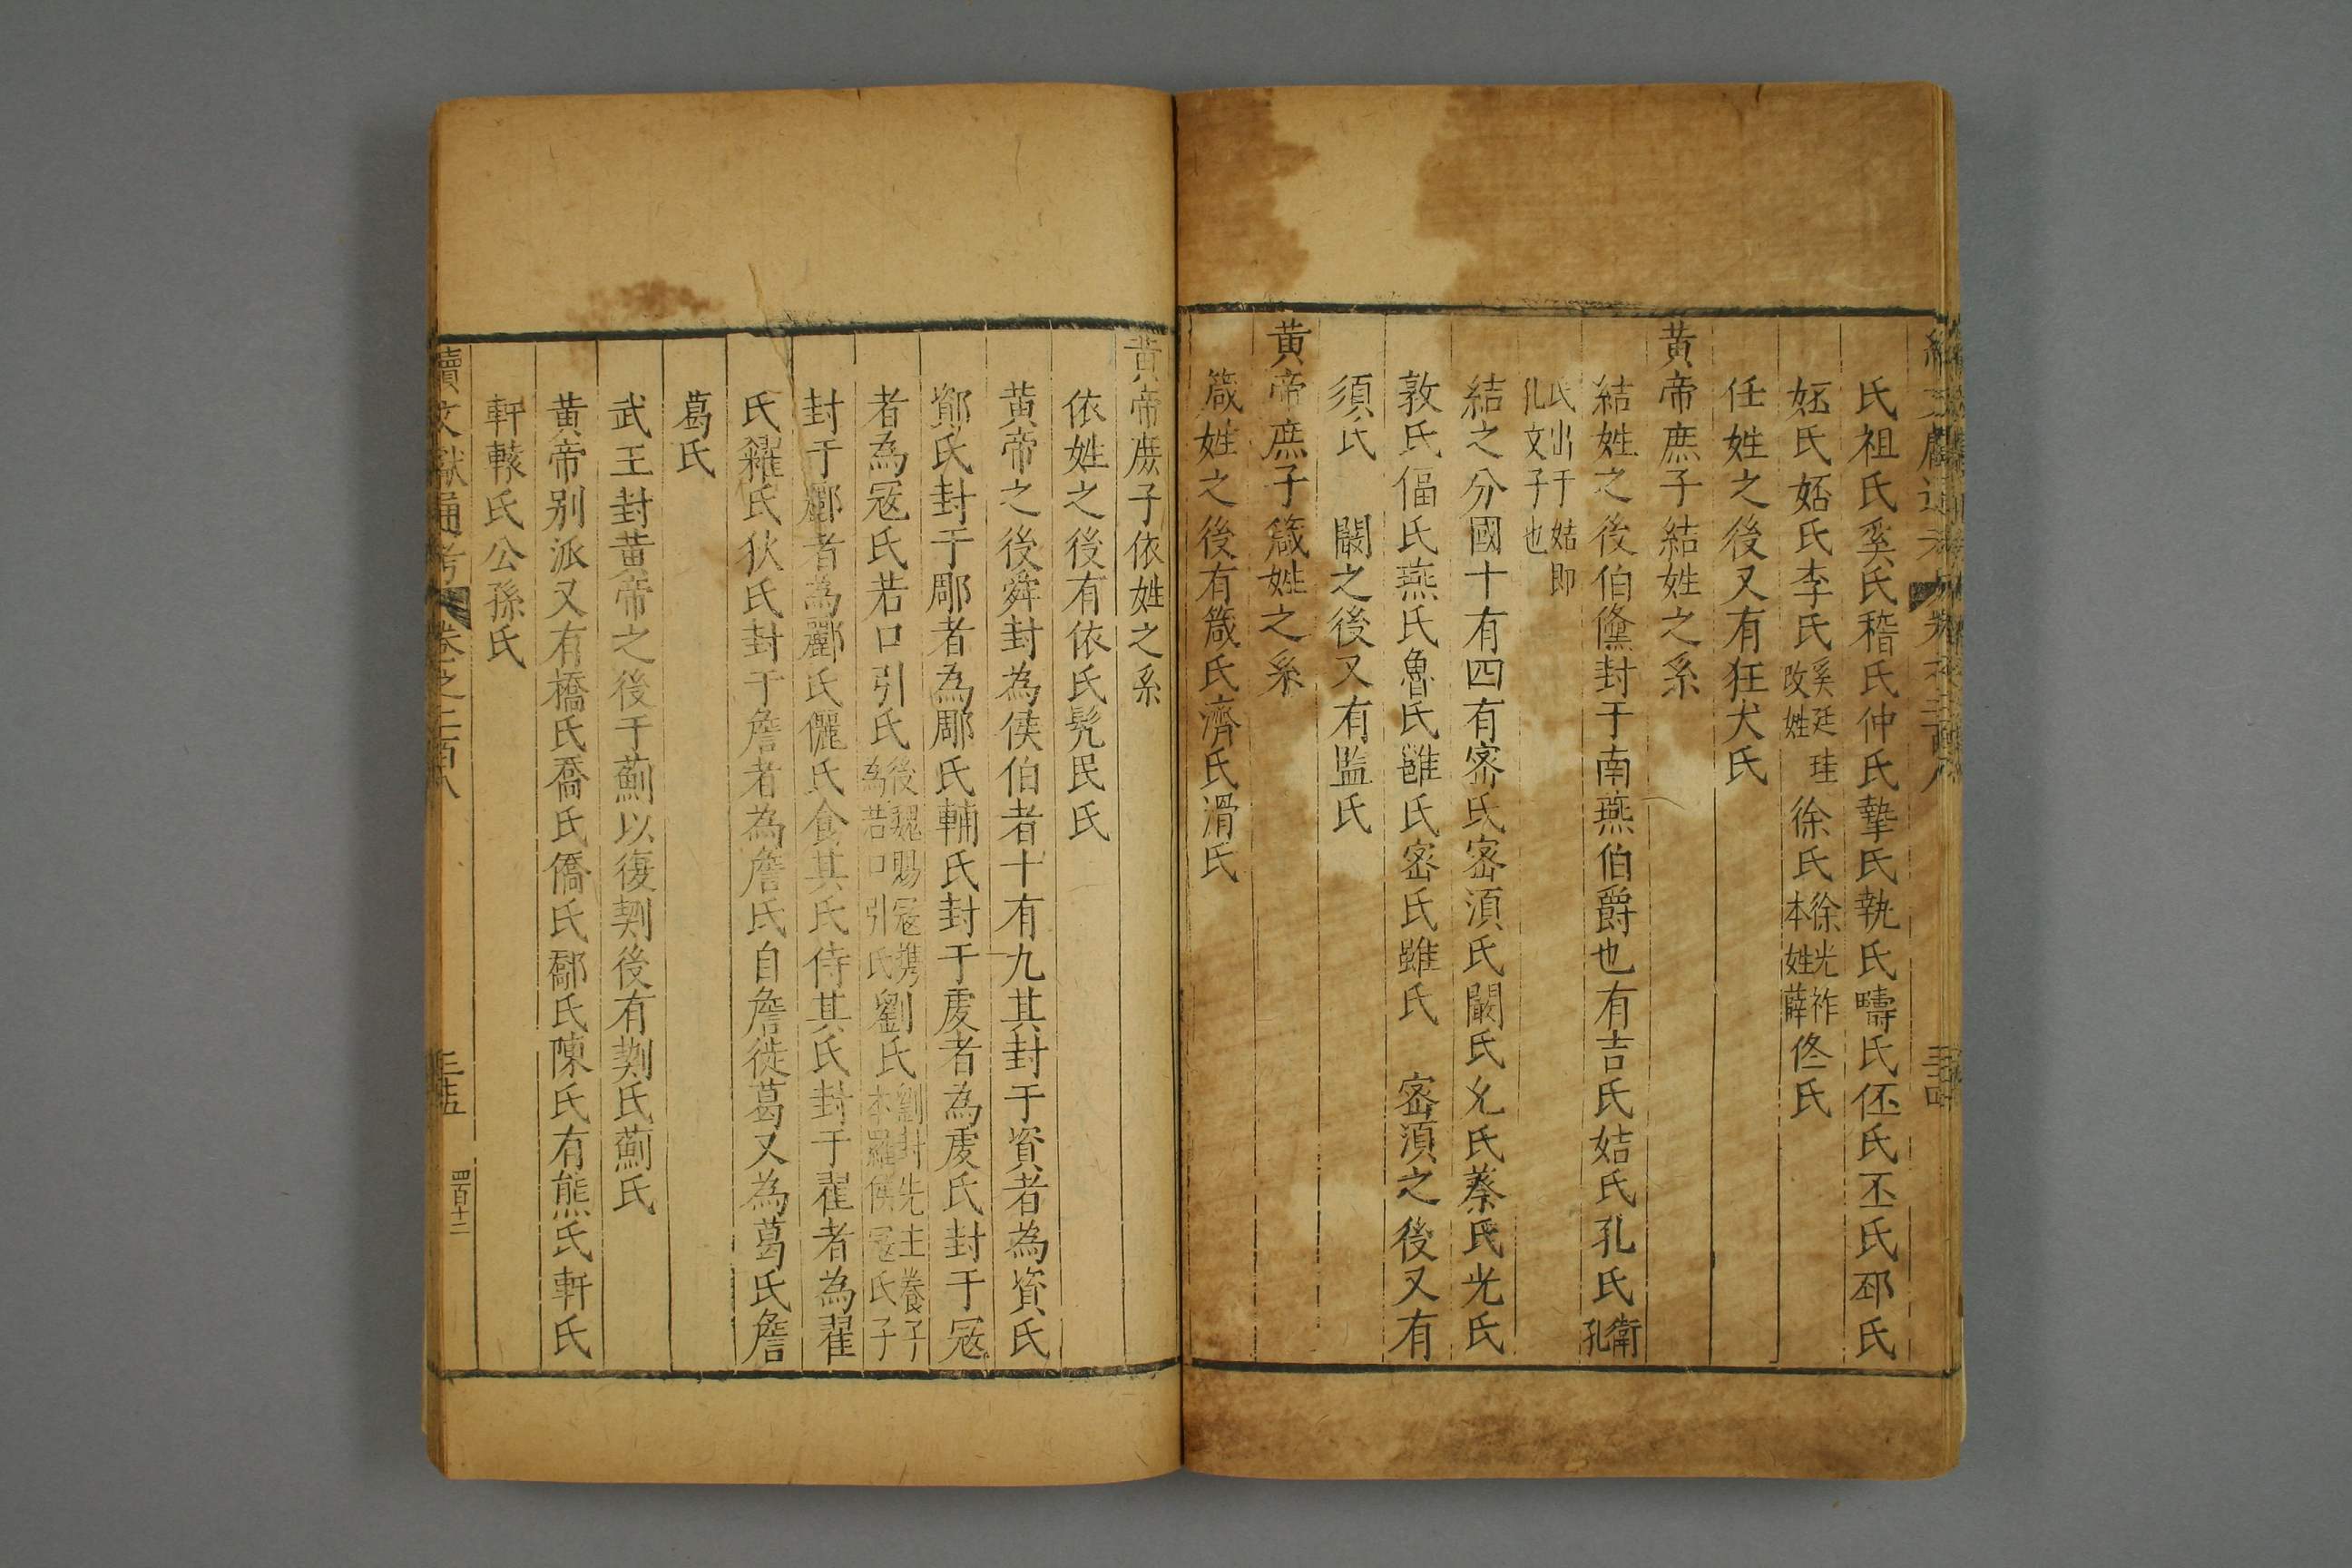 氏祖氏奚氏稽氏仲氏摯氏執氏疇氏伾氏丕氏邳氏
妚氏姤氏李氏奚廷珪改姓徐氏徐光祚本姓薛佟氏
任姓之後又有狂犬氏
黃帝庶子結姓之系
結姓之後伯儵封于南燕伯爵也有吉氏姞氏孔氏衛孔
氏出于姞即孔文子也
結之分國十有四有密氏密湏氏闞氏允氏蔡氏光氏
敦氏偪氏燕氏魯氏雝氏密氏雖氏 密湏之後又有
須氏 闞之後又有監氏
黃帝庶子箴姓之系
箴姓之後有箴氏濟氏滑氏
黃帝庶子依姓之系
依姓之後有依氏髡民氏
黃帝之後舜封為侯伯者十有九其封于資者為資氏
鄮氏封于郮者為郮氏輔氏封于虔者為虔氏封于冦
者為冦氏若口引氏後魏賜冦㩦為若口引氏劉氏劉封先主養子本羅侯冦氏子
封于酈者為酈氏儷氏食其氏侍其氏封于翟者為翟
氏糴氏狄氏封于詹者為詹氏自詹徙葛又為葛氏詹
葛氏
武王封黃帝之後于薊以復𠜦後有𠜦氏薊氏
黃帝别派又有橋氏喬氏僑氏鄗氏陳氏有熊氏軒氏
軒轅氏公孫氏
續文獻通考 卷之二百八 三十五 四百十二